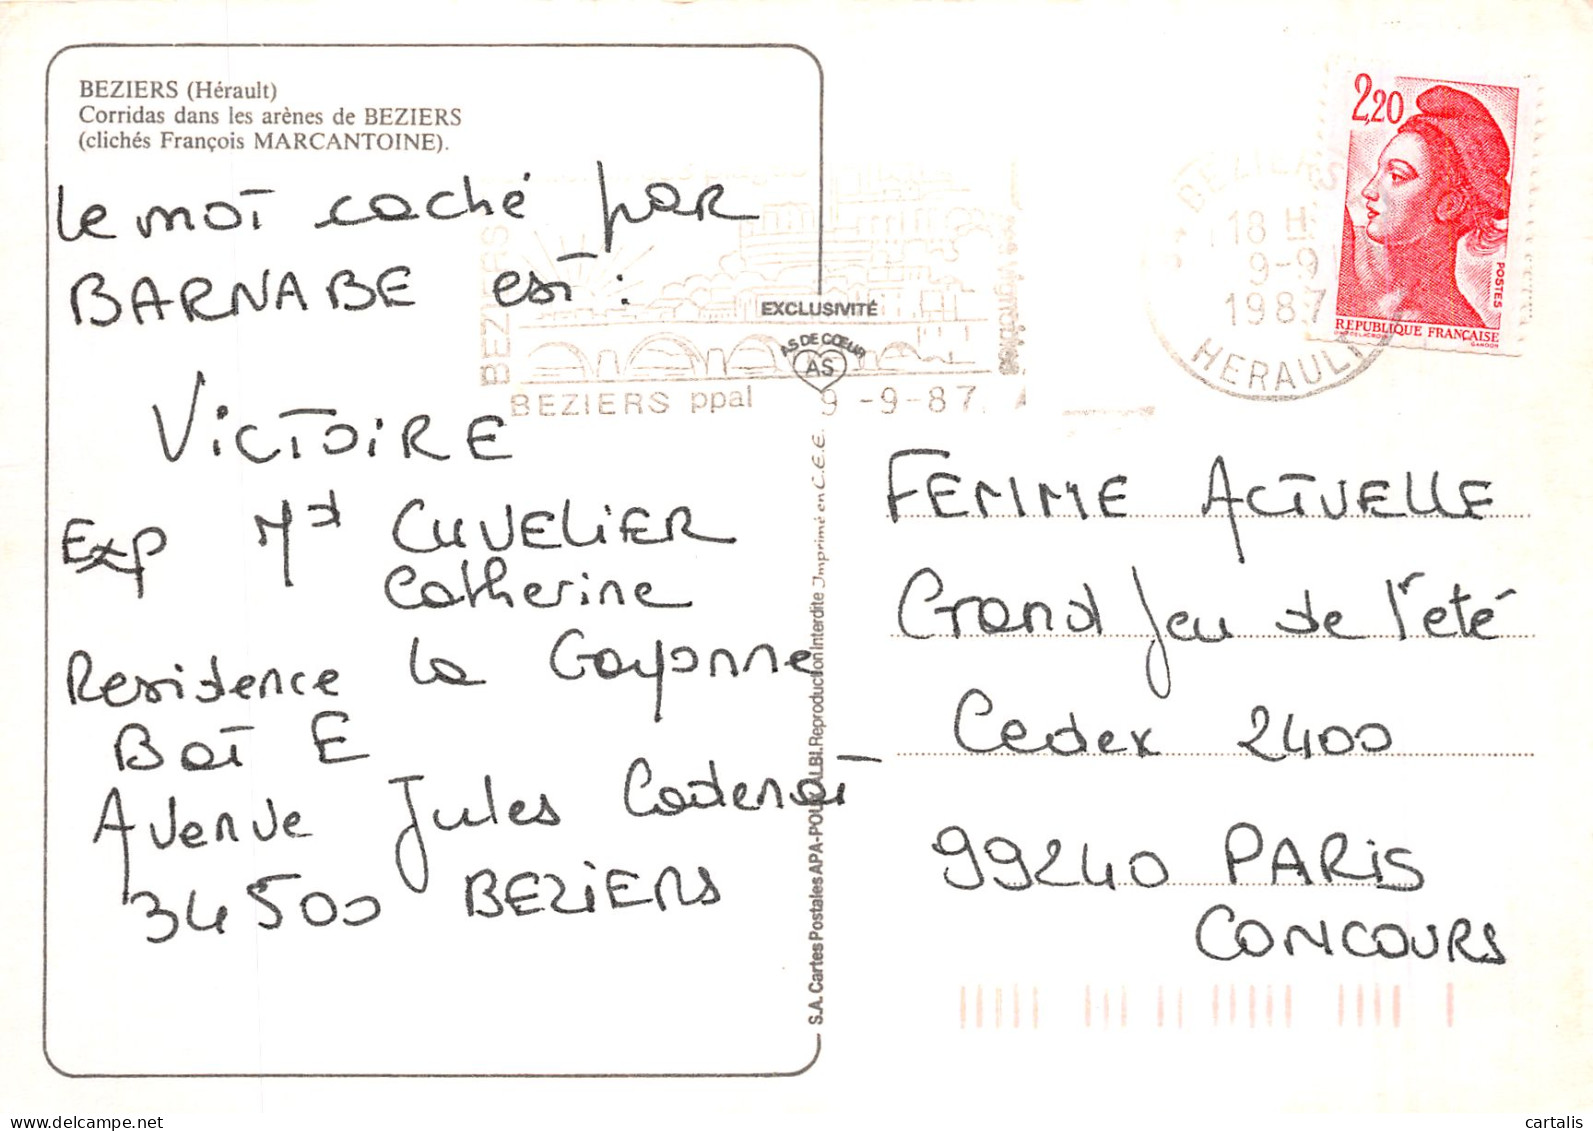 BEZIERS (Hérault)
Corridas dans les arènes de BEZIERS
(clichés François MARCANTOINE).
Le mot caché par
BARNABE est :
VICTOIRE
Exp Md CUVELIER
Catherine
Residence la Gayonne
Bat E
Avenue Jules Cadenat
34500 BEZIERS
EXCLUSIVITÉ
AS DE CŒUR
AS
BEZIERS
BEZIERS ppal 9-9-87
S.A. Cartes Postales APA-POUX ALBI. Reproduction Interdite Imprimé en C.E.E.
2,20
POSTES
REPUBLIQUE FRANÇAISE
GANDON
BEZIERS
18 H
9-9
1987
HERAULT
FEMME ACTUELLE
Grand Jeu de l'été
Cedex 2400
99240 PARIS
CONCOURS
delcampe.net
cartalis